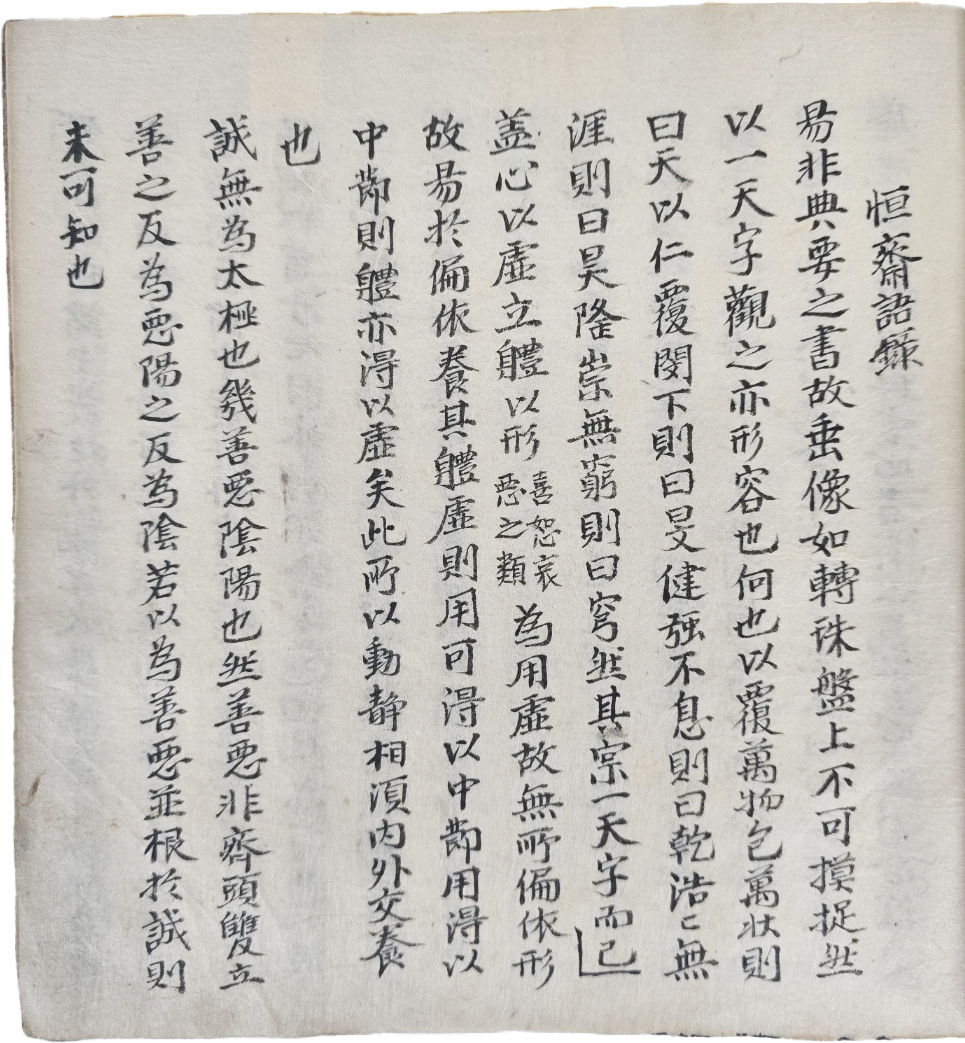 恒齋語錄
易非典要之書故垂像如轉珠盤上不可摸捉然
以一天字觀之亦形容也何也以覆萬物包萬狀則
曰天以仁覆閔下則曰旻健强不息則曰乾浩〻無
涯則曰昊隆崇無窮則曰穹然其宗一天字而已
蓋心以虛立體以形喜怒哀惡之類為用虛故無所偏依形
故易於偏依養其體虛則用可得以中節用得以
中節則體亦得以虛矣此所以動靜相須內外交養
也
誠無為太極也幾善惡陰陽也然善惡非齊頭雙立
善之反為惡陽之反為陰若以為善惡並根於誠則
未可知也